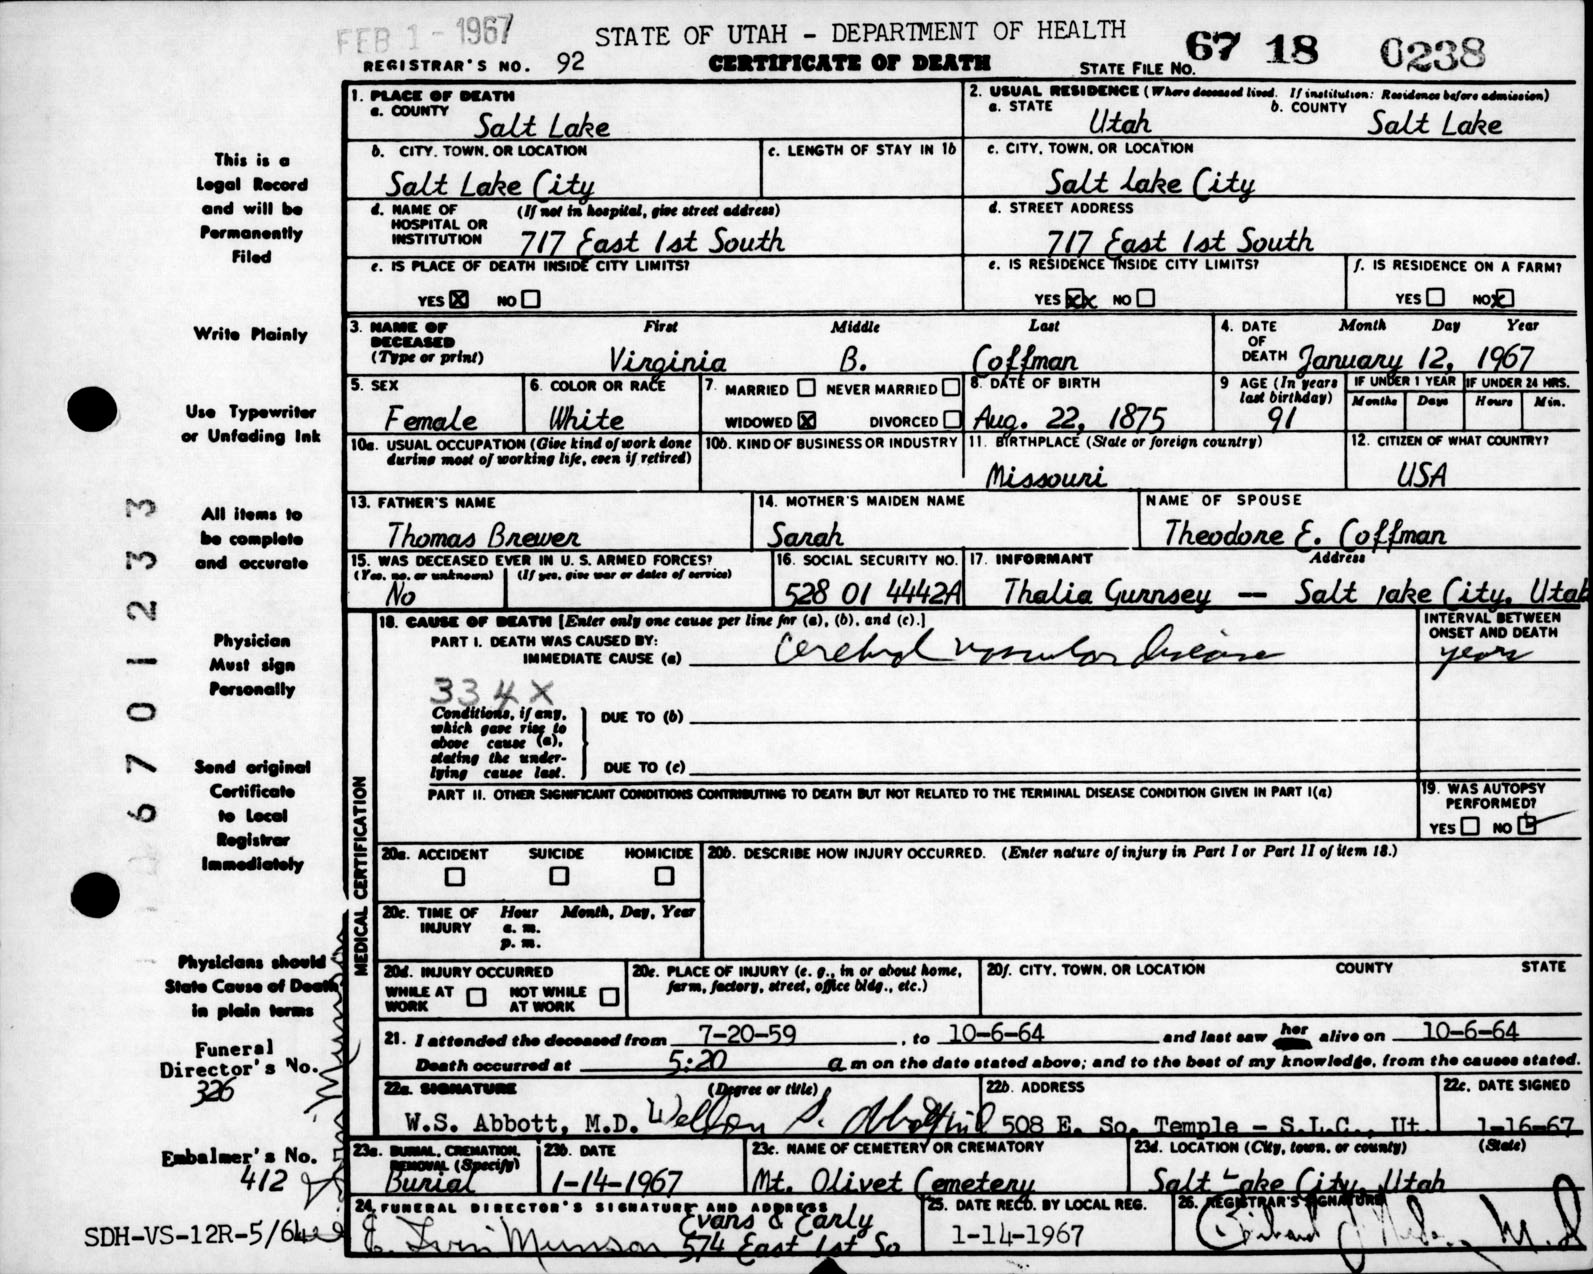 FEB 1 - 1967
STATE OF UTAH - DEPARTMENT OF HEALTH
REGISTRAR'S NO. 92
CERTIFICATE OF DEATH
STATE FILE NO. 67 18 0238
This is a
Legal Record
and will be
Permanently
Filed
Write Plainly
Use Typewriter
or Unfading Ink
All items to
be complete
and accurate
Physician
Must sign
Personally
Send original
Certificate
to Local
Registrar
Immediately
Physicians should
State Cause of Death
in plain terms
Funeral
Director's No.
326
Embalmer's No.
412
SDH-VS-12R-5/64
67 0 1 2 3 3
1. PLACE OF DEATH
a. COUNTY
Salt Lake
2. USUAL RESIDENCE (Where deceased lived. If institution: Residence before admission)
a. STATE b. COUNTY
Utah Salt Lake
b. CITY, TOWN, OR LOCATION c. LENGTH OF STAY IN 1b
Salt Lake City
c. CITY, TOWN, OR LOCATION
Salt lake City
d. NAME OF HOSPITAL OR INSTITUTION (If not in hospital, give street address)
717 East 1st South
d. STREET ADDRESS
717 East 1st South
e. IS PLACE OF DEATH INSIDE CITY LIMITS?
YES X NO
e. IS RESIDENCE INSIDE CITY LIMITS?
YES XX NO
f. IS RESIDENCE ON A FARM?
YES NO X
3. NAME OF DECEASED (Type or print) First Middle Last
Virginia B. Coffman
4. DATE OF DEATH Month Day Year
January 12, 1967
5. SEX
Female
6. COLOR OR RACE
White
7. MARRIED NEVER MARRIED
WIDOWED X DIVORCED
8. DATE OF BIRTH
Aug. 22, 1875
9 AGE (In years last birthday)
91
IF UNDER 1 YEAR IF UNDER 24 HRS.
Months Days Hours Min.
10a. USUAL OCCUPATION (Give kind of work done during most of working life, even if retired)
10b. KIND OF BUSINESS OR INDUSTRY
11. BIRTHPLACE (State or foreign country)
Missouri
12. CITIZEN OF WHAT COUNTRY?
USA
13. FATHER'S NAME
Thomas Brewer
14. MOTHER'S MAIDEN NAME
Sarah
NAME OF SPOUSE
Theodore E. Coffman
15. WAS DECEASED EVER IN U. S. ARMED FORCES?
(Yes, no, or unknown) (If yes, give war or dates of service)
No
16. SOCIAL SECURITY NO.
528 01 4442A
17. INFORMANT Address
Thalia Gurnsey -- Salt lake City, Utah
MEDICAL CERTIFICATION
18. CAUSE OF DEATH [Enter only one cause per line for (a), (b), and (c).]
PART I. DEATH WAS CAUSED BY:
IMMEDIATE CAUSE (a) Cerebral vascular disease
INTERVAL BETWEEN ONSET AND DEATH
years
334X
Conditions, if any, which gave rise to above cause (a), stating the underlying cause last.
DUE TO (b)
DUE TO (c)
PART II. OTHER SIGNIFICANT CONDITIONS CONTRIBUTING TO DEATH BUT NOT RELATED TO THE TERMINAL DISEASE CONDITION GIVEN IN PART I(a)
19. WAS AUTOPSY PERFORMED?
YES NO
20a. ACCIDENT SUICIDE HOMICIDE
20b. DESCRIBE HOW INJURY OCCURRED. (Enter nature of injury in Part I or Part II of item 18.)
20c. TIME OF INJURY Hour Month, Day, Year
a. m.
p. m.
20d. INJURY OCCURRED
WHILE AT WORK NOT WHILE AT WORK
20e. PLACE OF INJURY (e. g., in or about home, farm, factory, street, office bldg., etc.)
20f. CITY, TOWN, OR LOCATION COUNTY STATE
21. I attended the deceased from 7-20-59, to 10-6-64 and last saw her alive on 10-6-64
Death occurred at 5:20 a m on the date stated above; and to the best of my knowledge, from the causes stated.
22a. SIGNATURE (Degree or title)
W.S. Abbott, M.D.
22b. ADDRESS
508 E. So. Temple - S.L.C., Ut.
22c. DATE SIGNED
1-16-67
23a. BURIAL, CREMATION, REMOVAL (Specify)
Burial
23b. DATE
1-14-1967
23c. NAME OF CEMETERY OR CREMATORY
Mt. Olivet Cemetery
23d. LOCATION (City, town, or county) (State)
Salt Lake City, Utah
24. FUNERAL DIRECTOR'S SIGNATURE AND ADDRESS
Evans & Early
574 East 1st So
25. DATE RECD. BY LOCAL REG.
1-14-1967
26. REGISTRAR'S SIGNATURE